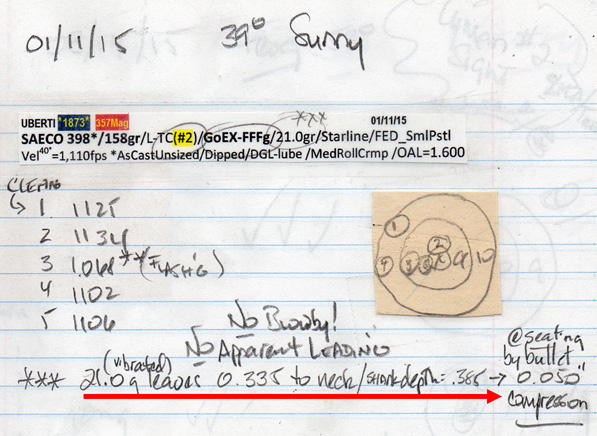 01/11/15 39° Sunny
***
UBERTI *1873* 357Mag 01/11/15
SAECO 398*/158gr/L-TC(#2)/GoEX-FFFg/21.0gr/Starline/FED_SmlPstl
Vel40'=1,110fps *AsCastUnsized/Dipped/DGL-lube /MedRollCrmp /OAL=1.600
1 1125
2 1134
3 1,068 ** (FLASH'G)
4 1102
5 1106
1
2
4 3 5 X 9 10
No Blowby!
No Apparent LEADING
@seating
by bullet
(vibrated)
*** 21.0g leaves 0.335 to neck/shank depth = .385 → 0.050"
compression